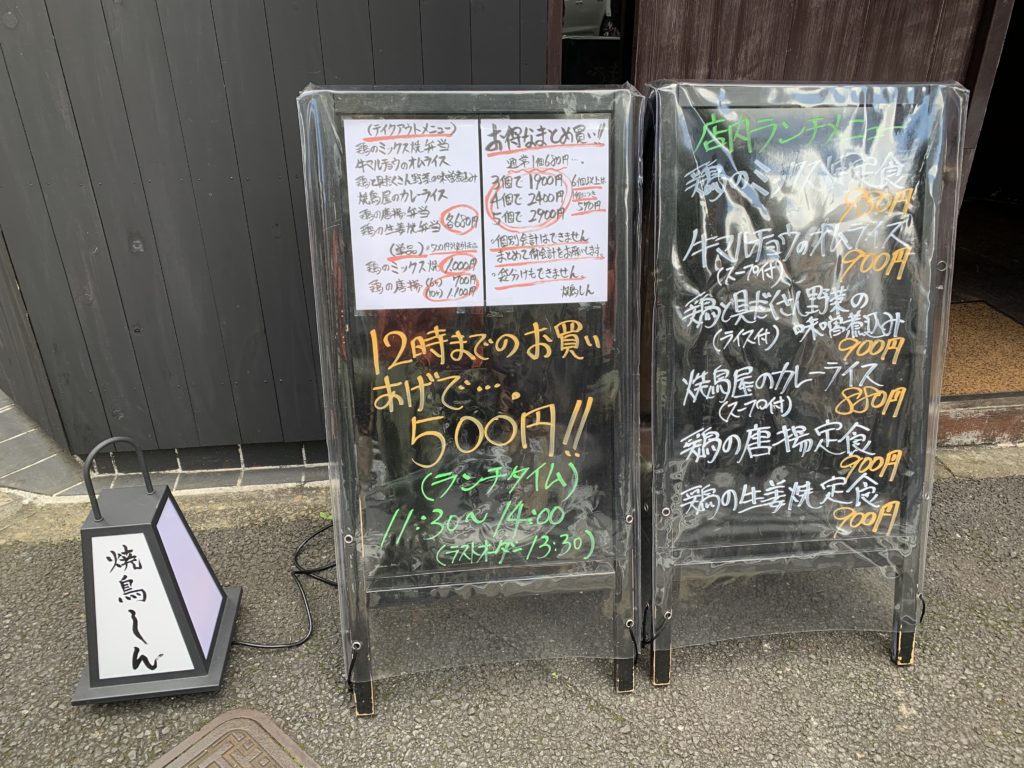 (テイクアウトメニュー)
鶏のミックス焼弁当
牛マルチョウのオムライス
鶏と具だくさん野菜の味噌煮込み
焼鳥屋のカレーライス
鶏の唐揚弁当
鶏の生姜焼弁当 各680円
(単品)
鶏のミックス焼 1000円
鶏の唐揚 (6ヶ) 700円
(10ヶ) 1100円
お得なまとめ買い!!
通常1個680円…
3個で 1900円
4個で 2400円
5個で 2900円
6個以上は
570円
・個別会計はできません
まとめてお会計をお願いします。
・袋分けもできません
焼鳥しん
12時までのお買い
あげで…
500円!!
(ランチタイム)
11:30〜14:00
(ラストオーダー 13:30)
店内ランチメニュー
鶏のミックス焼定食
牛マルチョウのオムライス
(スープ付) 900円
鶏と具だくさん野菜の
(ライス付) 味噌煮込み
900円
焼鳥屋のカレーライス
(スープ付) 880円
鶏の唐揚定食
900円
鶏の生姜焼定食
900円
焼鳥しん